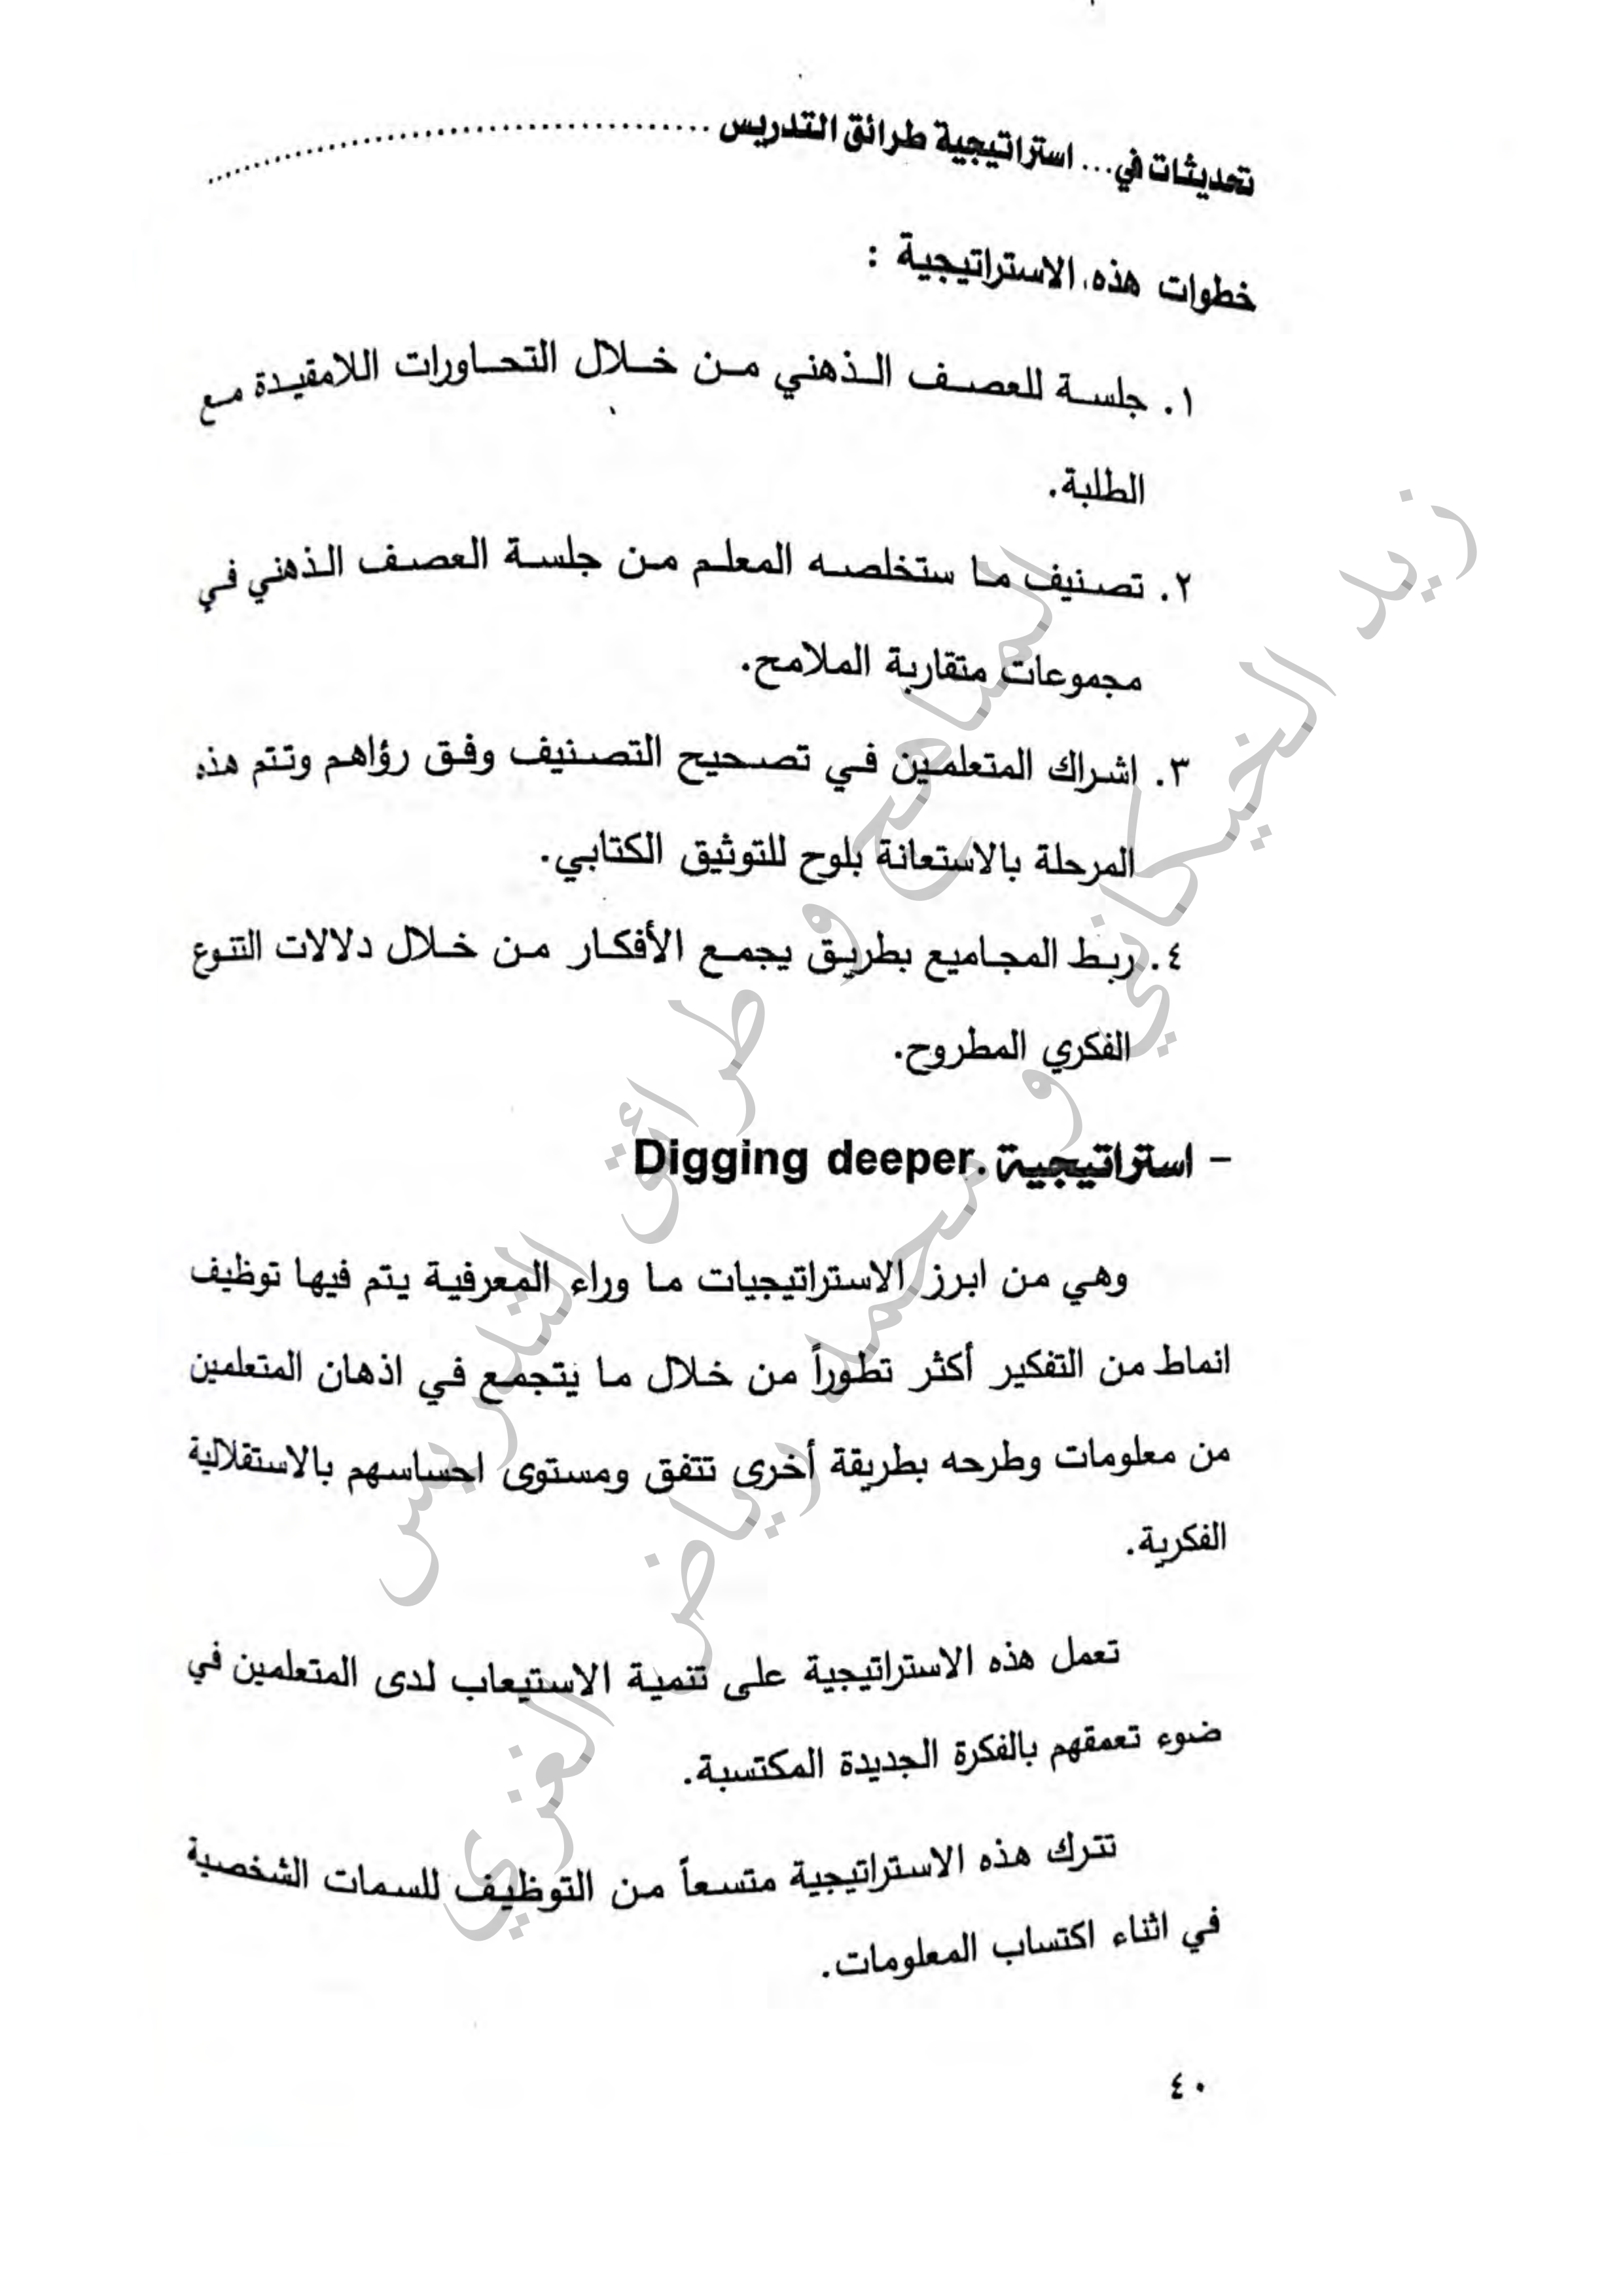 تحديثات في... استراتيجية طرائق التدريس
خطوات هذه الاستراتيجية :
١. جلسة للعصف الذهني من خلال التحاورات اللامقيدة مع
الطلبة.
٢. تصنيف ما ستخلصه المعلم من جلسة العصف الذهني في
مجموعات متقاربة الملامح.
٣. اشراك المتعلمين في تصحيح التصنيف وفق رؤاهم وتتم هذه
المرحلة بالاستعانة بلوح للتوثيق الكتابي.
٤. ربط المجاميع بطريق يجمع الأفكار من خلال دلالات التنوع
الفكري المطروح.
– استراتيجية Digging deeper.
وهي من ابرز الاستراتيجيات ما وراء المعرفية يتم فيها توظيف
انماط من التفكير أكثر تطوراً من خلال ما يتجمع في اذهان المتعلمين
من معلومات وطرحه بطريقة أخرى تتفق ومستوى احساسهم بالاستقلالية
الفكرية.
تعمل هذه الاستراتيجية على تنمية الاستيعاب لدى المتعلمين في
ضوء تعمقهم بالفكرة الجديدة المكتسبة.
تترك هذه الاستراتيجية متسعاً من التوظيف للسمات الشخصية
في اثناء اكتساب المعلومات.
٤٠
المناهج و طرائق التدريس
زيد الخيكاني و محمد رياض الغزي